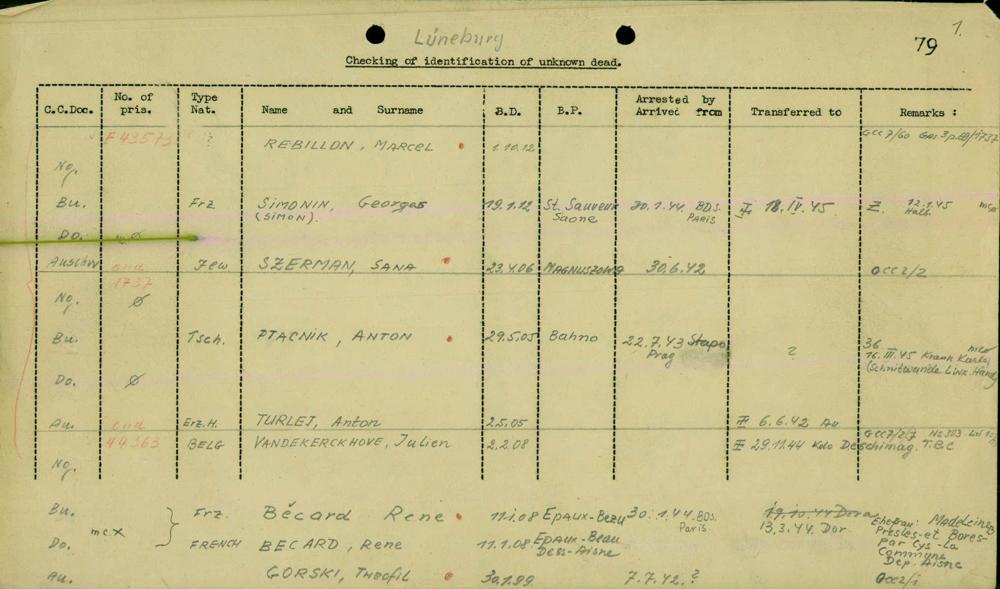 Lüneburg
79 1.
Checking of identification of unknown dead.
C.C.Doc. No. of pris. Type Nat. Name and Surname B.D. B.P. Arrested by Arrived from Transferred to Remarks :
F 43573 REBILLON, MARCEL 1.10.12 GCC7/60
Ng.
Bu. Frz SIMONIN, Georges 19.1.12 St. Sauveur 30.1.44 BDS. II 18.IV.45. Z. 12.1.45
(SIMON). Saone PARIS Halb.
Do. Ø
Auschw and Jew SZERMAN, SANA 23.4.06 MAGNUSZOWA 30.6.42 OCC2/2
1737
Ng. Ø
Bu. Tsch. PTACNIK, ANTON 29.5.05 Bahno 22.7.43 Stapo 2 36
Prag 16.III.45 Krank Karte
Do. Ø (Schnittwunde Link. Hand)
Au. and Erz.H. TURLEJ, Anton 2.5.05 II 6.6.42 Au
44363 BELG VANDEKERCKHOVE, Julien 2.2.08 II 29.11.44 Kdo Deschimag. T.B.C
Ng.
Bu. Frz. Bécard Rene 11.1.08 Epaux-Bezu 30.1.44 BDS. 19.10.44 Dora Ehefrau: Madeleine B
mcx Paris 13.3.44 Dor Presles-et Bores-
Do. FRENCH BECARD, Rene 11.1.08 Epaux-Beau Par Cys-La
Dess-Aisne Commune
Dep. Aisne
Au. GORSKI, Theofil 30.1.99 7.7.42.? Occ2/1